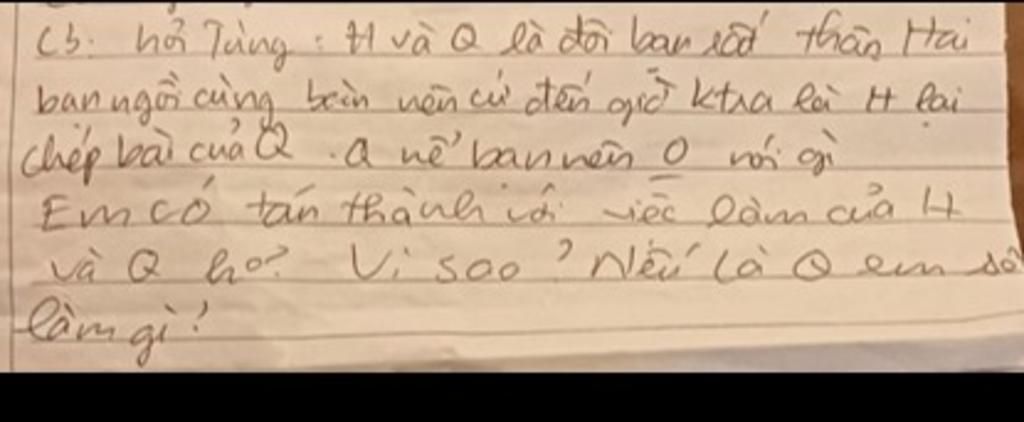 C3. hỏi Tùng: H và Q là đôi bạn rất thân Hai
bạn ngồi cùng bàn nên cứ đến giờ ktra là H lại
chép bài của Q. Q nể bạn nên O nói gì
Em có tán thành với việc làm của H
và Q ko? Vì sao? Nếu là Q em sẽ
làm gì?